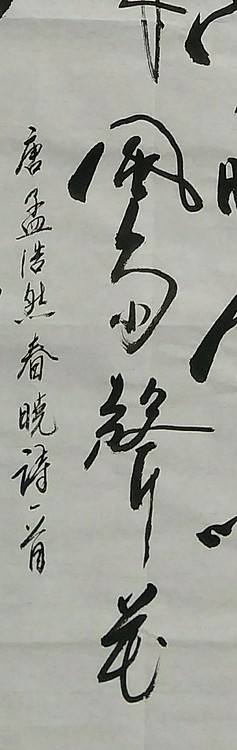 風雨聲花
唐孟浩然春晓詩一首